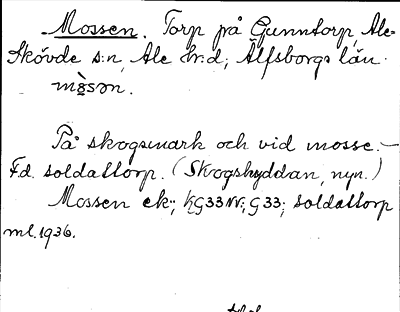 Mossen. Torp på Gunntorp, Ale-
Skövde s:n, Ale hr:d, Älfsborgs län.
mòsən.
På skogsmark och vid mosse.–
F.d. soldattorp. (Skogshyddan, nyn.)
Mossen ek.; KG33NV; G33; soldattorp
ml. 1936.